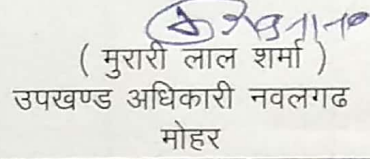 ( मुरारी लाल शर्मा )
उपखण्ड अधिकारी नवलगढ
मोहर